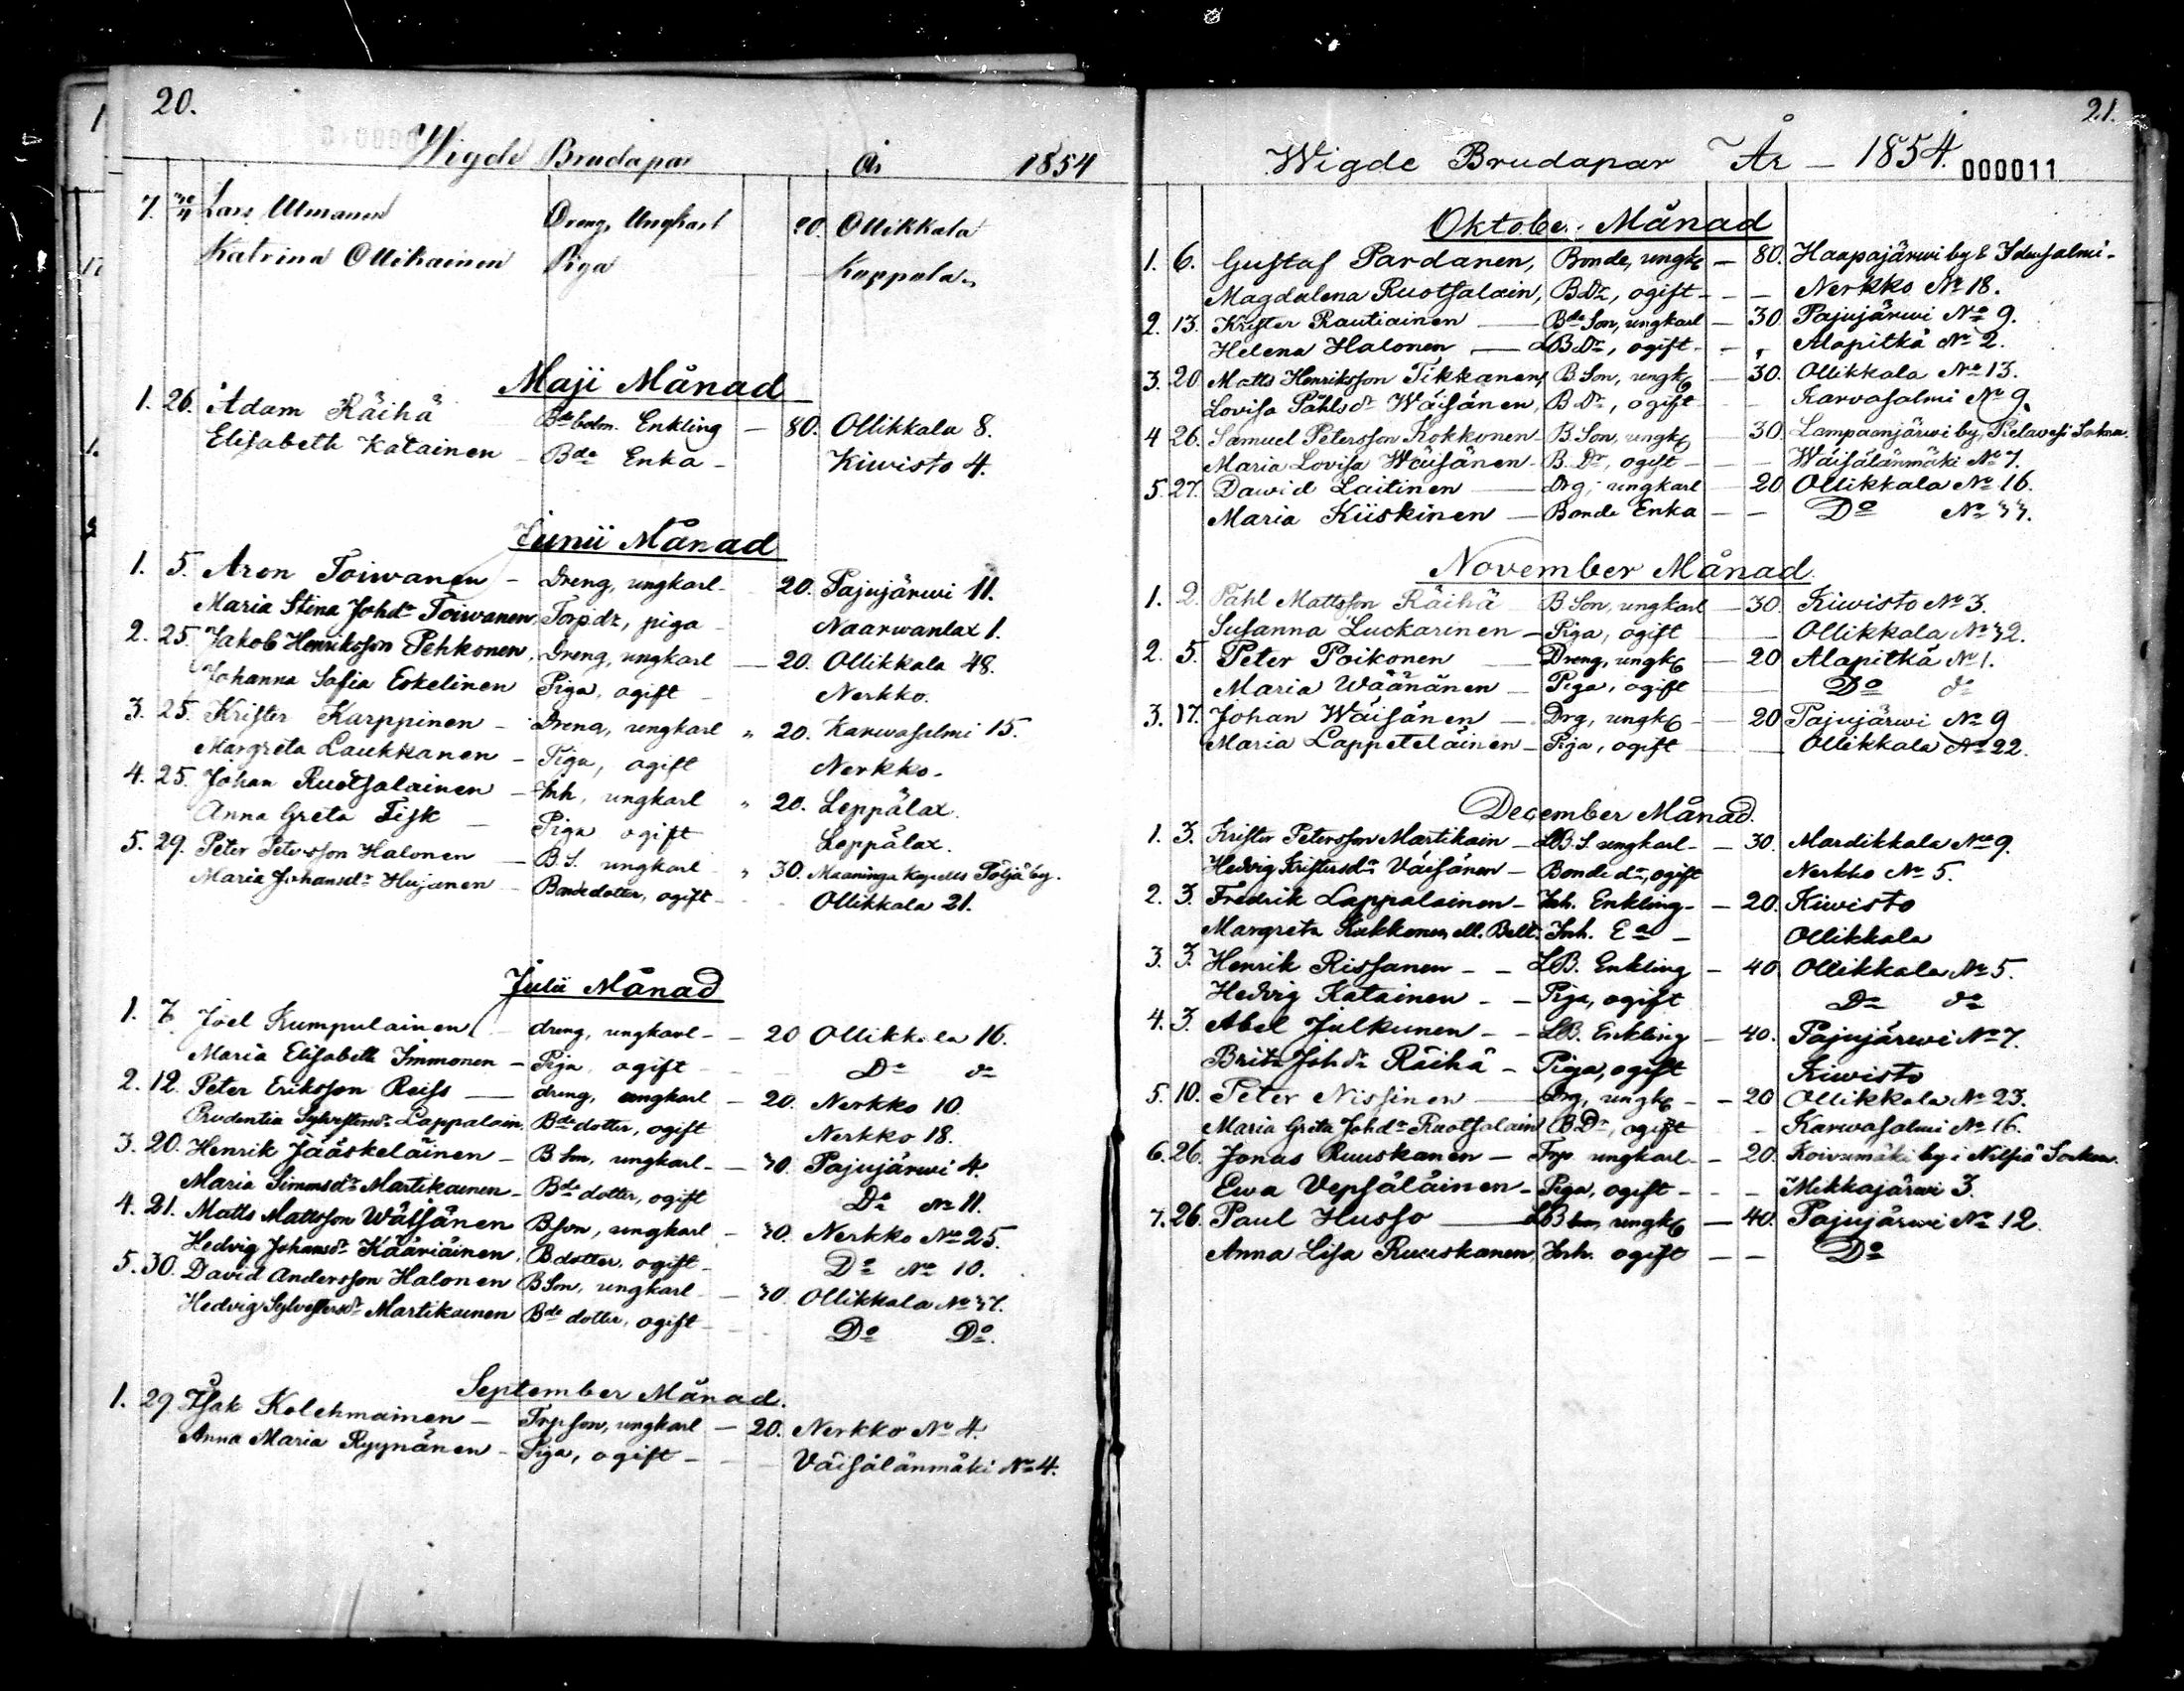 20.
Wigde Brudapar År 1854
7. 30/4 Lars Ulmanen Dreng, Ungkarl 20. Ollikkala
Katrina Ollikainen Piga Kappala
Maji Månad
1. 26. Adam Räihä Bde bolm. Enkling — 80. Ollikkala 8.
Elisabeth Katainen — Bde Enka — Kiwisto 4.
Junii Månad
1. 5. Aron Toiwanen — Dreng, ungkarl — 20. Pajujärwi 11.
Maria Stina Johdr Toiwanen, Torpdr, piga — Naarwanlax 1.
2. 25. Jakob Henriksson Pehkonen, Dreng, ungkarl — 20. Ollikkala 48.
Johanna Sofia Eskelinen Piga, ogift — Nerkko.
3. 25. Krister Karppinen — Dreng, ungkarl „ 20. Karwasalmi 15.
Margreta Laukkanen — Piga, ogift Nerkko.
4. 25. Johan Ruotsalainen — Inh, ungkarl „ 20. Leppälax.
Anna Greta Fisk — Piga ogift Leppälax.
5. 29. Peter Petersson Halonen — B.S. ungkarl „ 30. Maaninga Kapells Pöljä by.
Maria Johansdr Hujanen — Bondedotter, ogift — Ollikkala 21.
Julii Månad
1. 7. Joel Kumpulainen — dreng, ungkarl — 20 Ollikkala 16.
Maria Elisabeth Immonen — Piga, ogift — Do do
2. 12. Peter Eriksson Reiss — dreng, ungkarl — 20. Nerkko 10.
Prudentia Sylvestersdr Lappalain, Bde dotter, ogift Nerkko 18.
3. 20. Henrik Jääskeläinen — B Son, ungkarl — 30. Pajujärwi 4.
Maria Simonsdr Martikainen — Bde dotter, ogift Do No 11.
4. 21. Matts Mattsson Wäisänen B son, ungkarl — 30. Nerkko No 25.
Hedvig Johansdr Kääriäinen, B dotter, ogift — Do No 10.
5. 30. David Andersson Halonen B Son, ungkarl — 30. Ollikkala No 37.
Hedvig Sylvestersdr Martikainen Bde dotter, ogift — Do Do.
September Månad.
1. 29. Isak Kolehmainen — Trpson, ungkarl — 20. Nerkko No 4.
Anna Maria Ryynänen — Piga, ogift — Väisälänmäki No 4.
21.
Wigde Brudapar År — 1854.
000011
Oktober Månad
1. 6. Gustaf Pardanen, Bonde, ungk — 80. Haapajärwi by & Idensalmi.
Magdalena Ruotsalain, B Dr, ogift — Nerkko No 18.
2. 13. Krister Rautiainen — Bde Son, ungkarl — 30. Pajujärwi No 9.
Helena Halonen — LB Dr, ogift — „ Alapitkä No 2.
3. 20. Matts Henriksson Tikkanen, B Son, ungk — 30. Ollikkala No 13.
Lovisa Påhlsdr Wäisänen, B Dr, ogift Karvasalmi No 9.
4 26. Samuel Petersson Kokkonen — B. Son, ungk — 30. Lampaanjärwi by, Pielavesi Sokna
Maria Lovisa Wäisänen — B. Dr, ogift — Wäisälänmäki No 7.
5. 27. Dawid Laitinen — Drg, ungkarl — 20 Ollikkala No 16.
Maria Kiiskinen — Bonde Enka — Do No 33.
November Månad
1. 2. Påhl Mattsson Räihä B Son, ungkarl — 30. Kiwisto No 3.
Susanna Luckarinen — Piga, ogift — Ollikkala No 32.
2. 5. Peter Poikonen — Dreng, ungk — 20 Alapitkä No 1.
Maria Wäänänen — Piga, ogift Do do
3. 17. Johan Wäisänen — Drg, ungk — 20 Pajujärwi No 9
Maria Lappeteläinen — Piga, ogift — Ollikkala No 22.
December Månad.
1. 3. Krister Petersson Martikain — LB. S. ungkarl — 30. Mardikkala No 9.
Hedvig Kristersdr Väisänen — Bonde dr, ogift Nerkko No 5.
2. 3. Fredrik Lappalainen — Inh. Enkling — 20. Kiwisto
Margreta Kukkonen ell. Belt. Inh. Ea — Ollikkala
3. 3. Henrik Rissanen — LB. Enkling — 40 Ollikkala No 5.
Hedvig Katainen — Piga, ogift Do do
4. 3. Abel Julkunen — LB. Enkling — 40. Pajujärwi No 7.
Brita Johdr Räihä — Piga, ogift Kiwisto
5. 10. Peter Nissinen — Drg, ungk — 20 Ollikkala No 23.
Maria Greta Johdr Ruotsalain B Dr, ogift — Karwasalmi No 16.
6. 26. Jonas Ruuskanen — Trp ungkarl — 20. Koivumäki by i Nilsiä Socken.
Ewa Vepsäläinen — Piga, ogift — Mikkajärwi 3.
7. 26. Paul Husso — LB ungk — 40. Pajujärwi No 12.
Anna Lisa Ruuskanen, Inh. ogift — Do